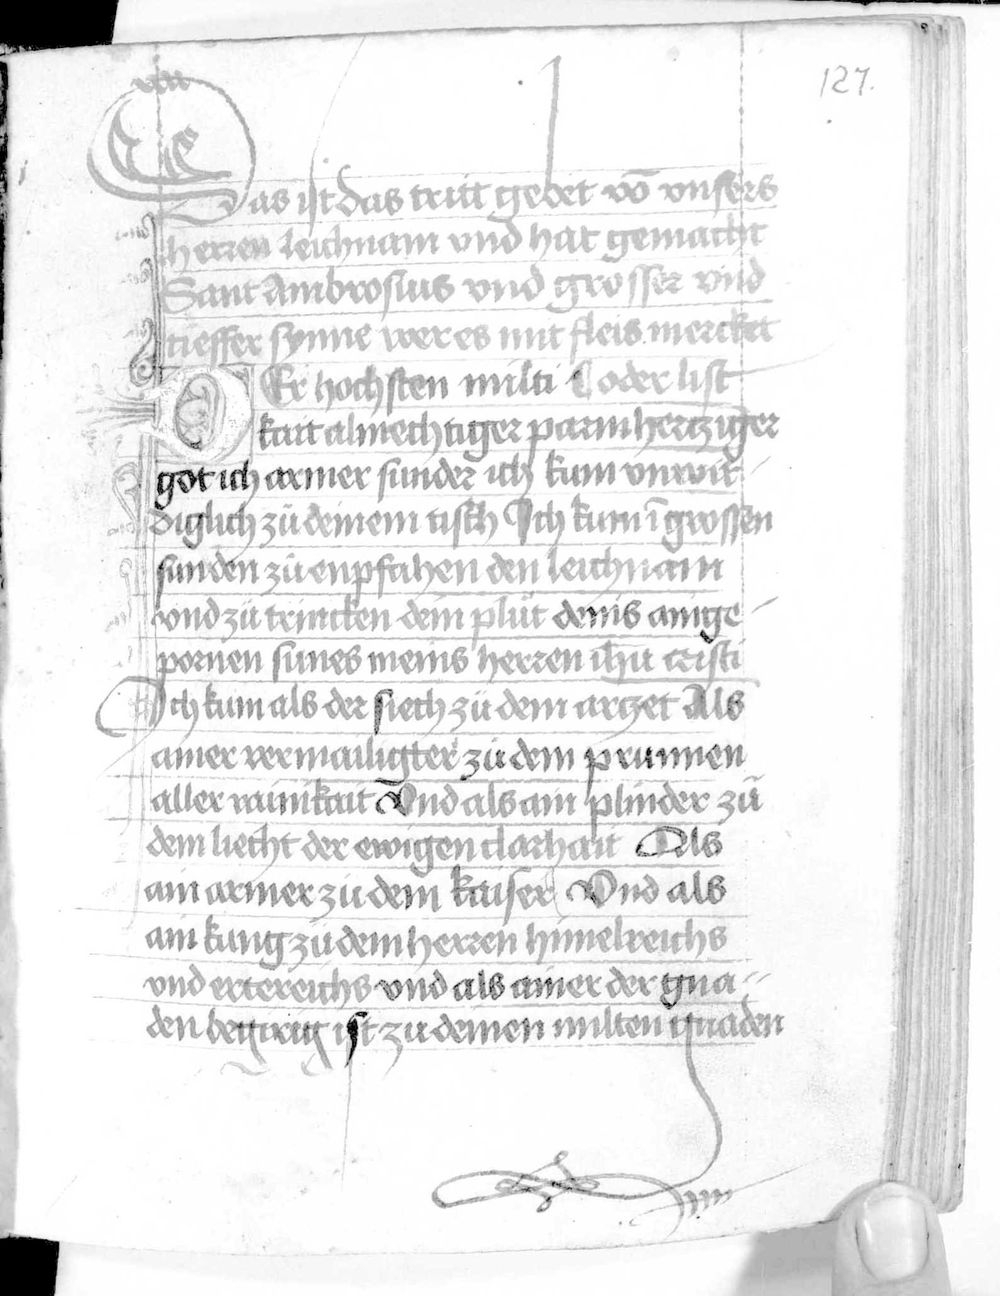 127.
Das ist das tritt gebet vō vnsers
herren leichnam vnd hat gemacht
Sant Ambrosius vnd grosser vnd
tieffer synne wer es mit fleis mercket
Er hochsten milti Coder list
kait almechtiger parmhertziger
got ich armer sunder ich kum vnwir
diglich zü deinem tisch Ich kum ī grossen
sunden zü enpfahen den leichnam
vnd zü trincken dein plüt deinis ainige
pornen sunes meins herren ihū cristi
Ich kum als der siech zü dem arczet Als
ainer vermailigter zü dem prunnen
aller rainikait Vnd als ain plinder zü
dem liecht der ewigen clarhait Als
ain armer zü dem kaiser Vnd als
ain kung zü dem herren himelreichs
vnd ertereichs vnd als ainer der gna
den begirig ist zü deinen milten gnaden